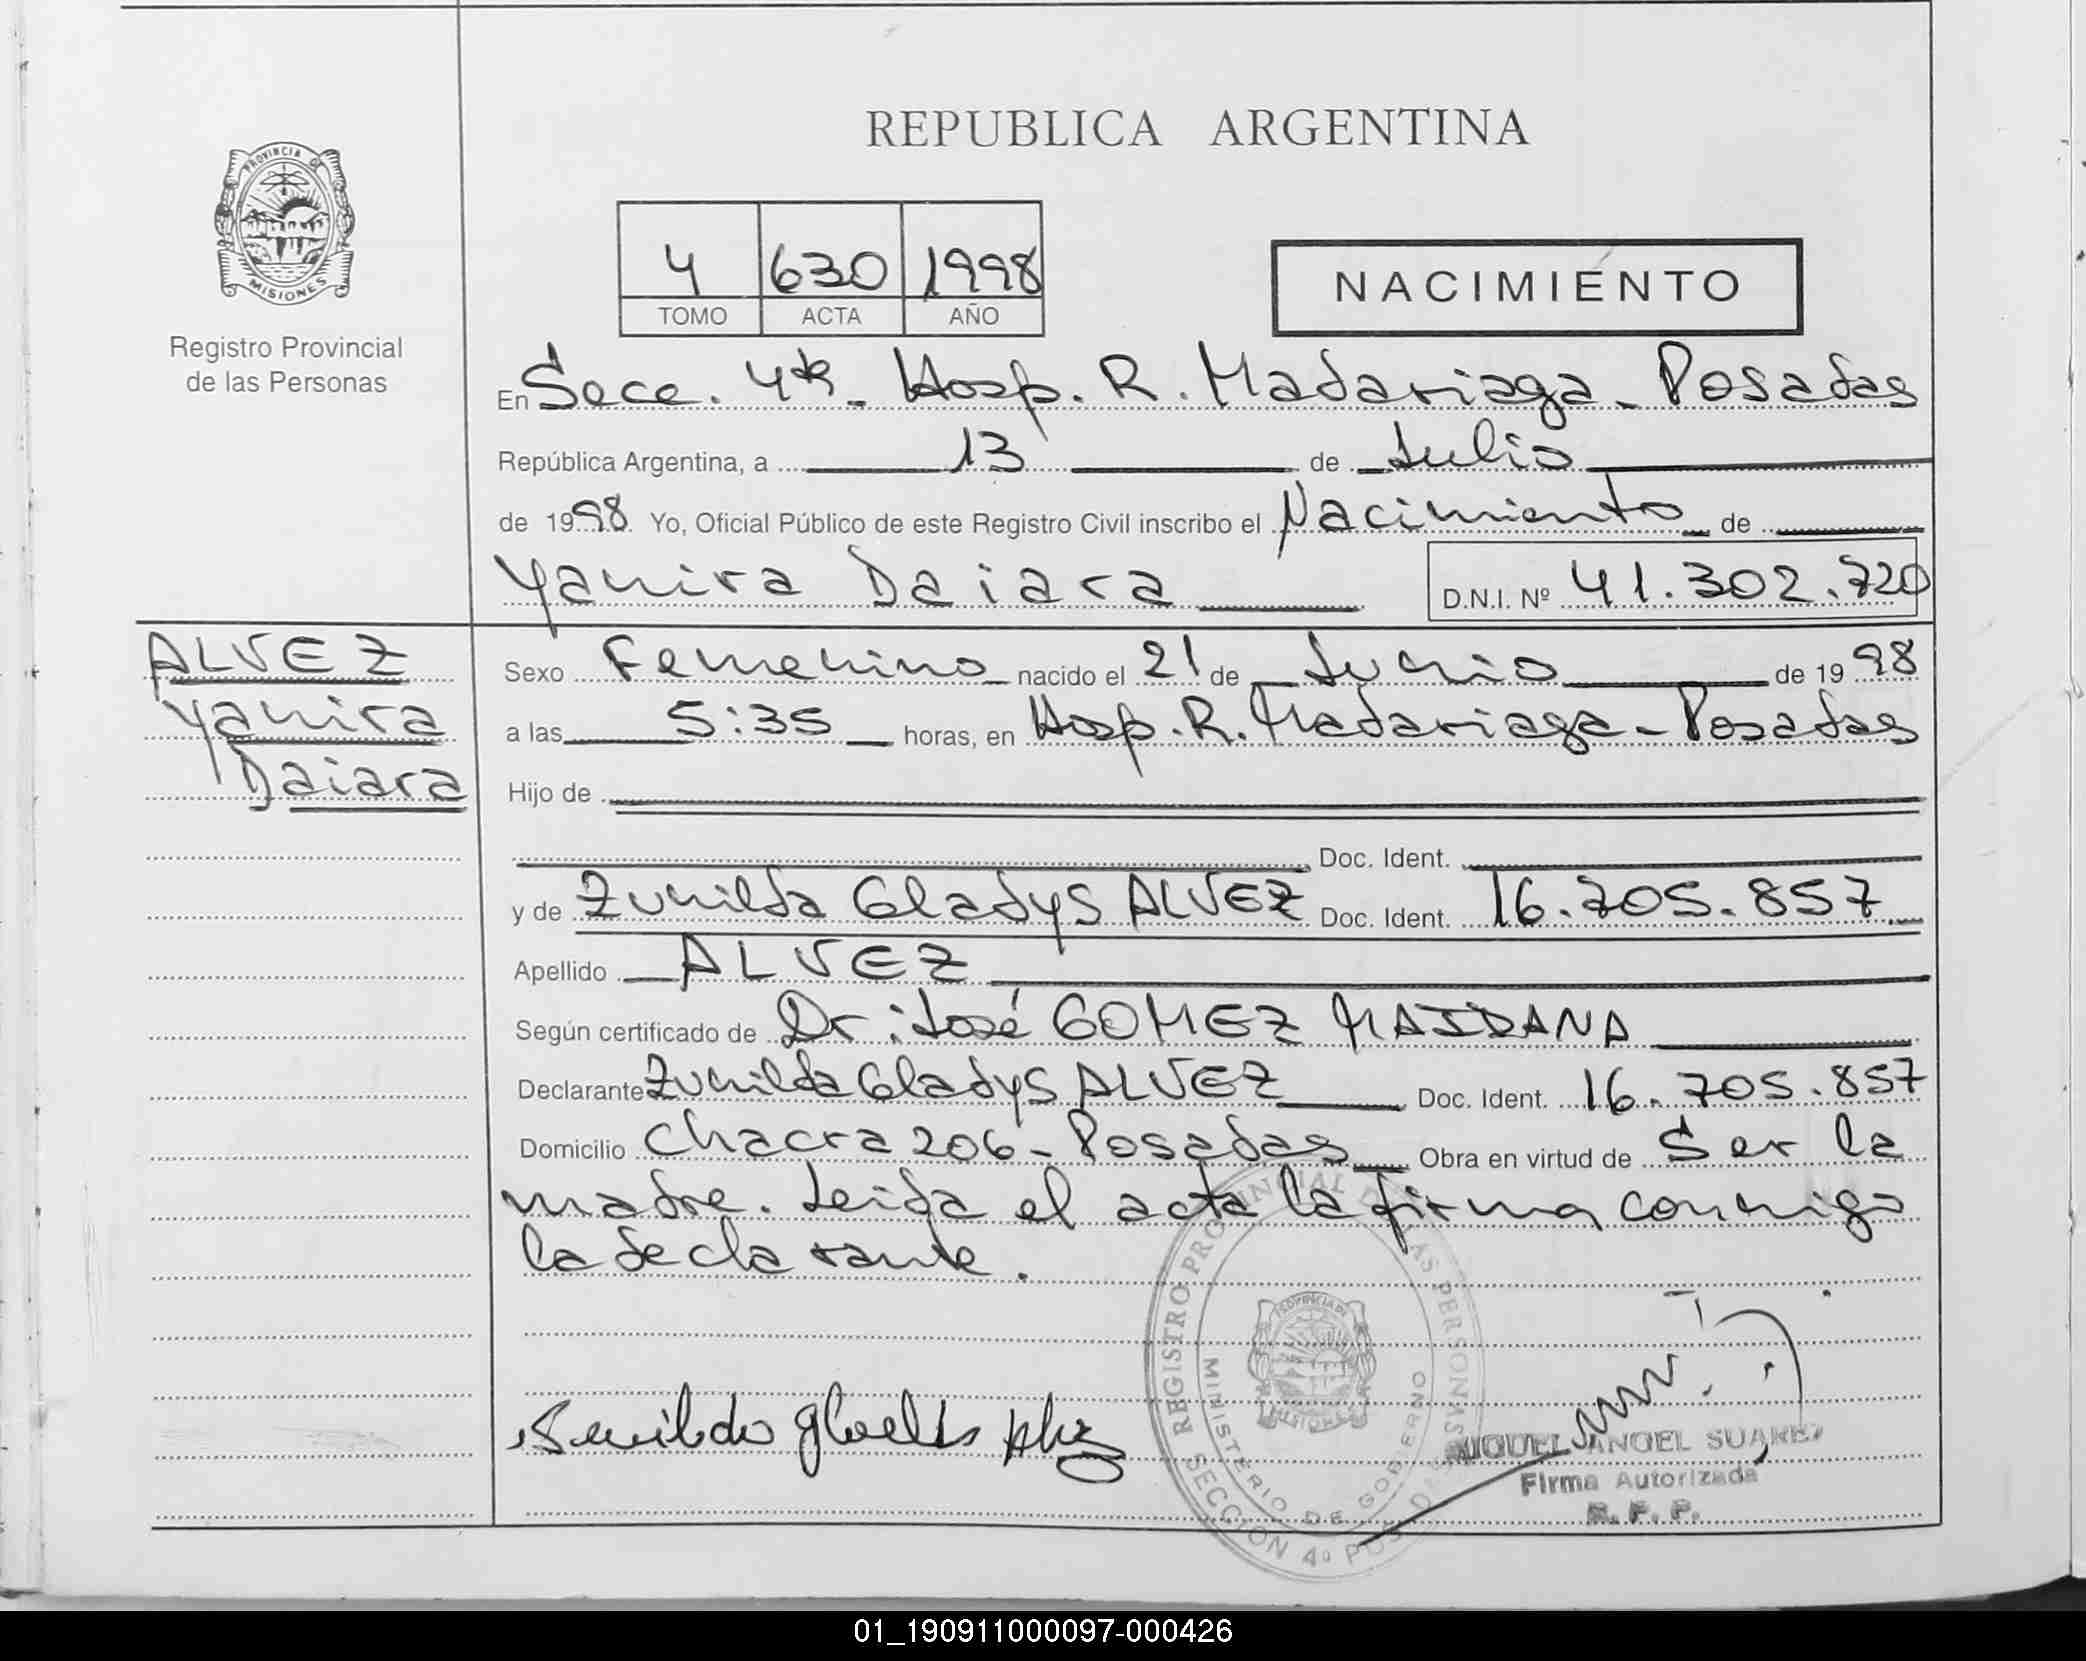 REPUBLICA ARGENTINA
PROVINCIA DE
MISIONES
Registro Provincial
de las Personas
4 630 1998
TOMO ACTA AÑO
NACIMIENTO
En Secc. 4ta. Hosp. R. Madariaga - Posadas
República Argentina, a 13 de Julio
de 1998 Yo, Oficial Público de este Registro Civil inscribo el Nacimiento de
Yanira Daiara D.N.I. Nº 41.302.720
ALVEZ
Yanira
Daiara
Sexo Femenino nacido el 21 de Junio de 1998
a las 5:35 horas, en Hosp. R. Madariaga - Posadas
Hijo de
Doc. Ident.
y de Zunilda Gladys ALVEZ Doc. Ident. 16.705.857
Apellido ALVEZ
Según certificado de Dr: José GOMEZ MAIDANA
Declarante Zunilda Gladys ALVEZ Doc. Ident. 16.705.857
Domicilio Chacra 206 - Posadas Obra en virtud de Ser la
madre. Leida el acta la firma conmigo
la declarante.
REGISTRO PROVINCIAL DE LAS PERSONAS
MINISTERIO DE GOBIERNO
SECCION 4º
PROVINCIA DE
MISIONES
MIGUEL ANGEL SUAREZ
Firma Autorizada
R. P. P.
01_190911000097-000426